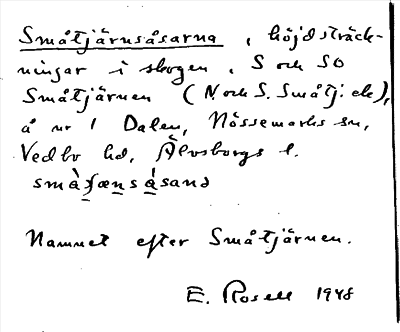 Småtjärnsåsarna, höjdsträck-
ningar i skogen, S och SO
Småtjärnen (N. och S. Småtj. ek),
å nr 1 Dalen, Nössemarks sn,
Vedbo hd, Älvsborgs l.
Namnet efter Småtjärnen.
E. Rosell 1948